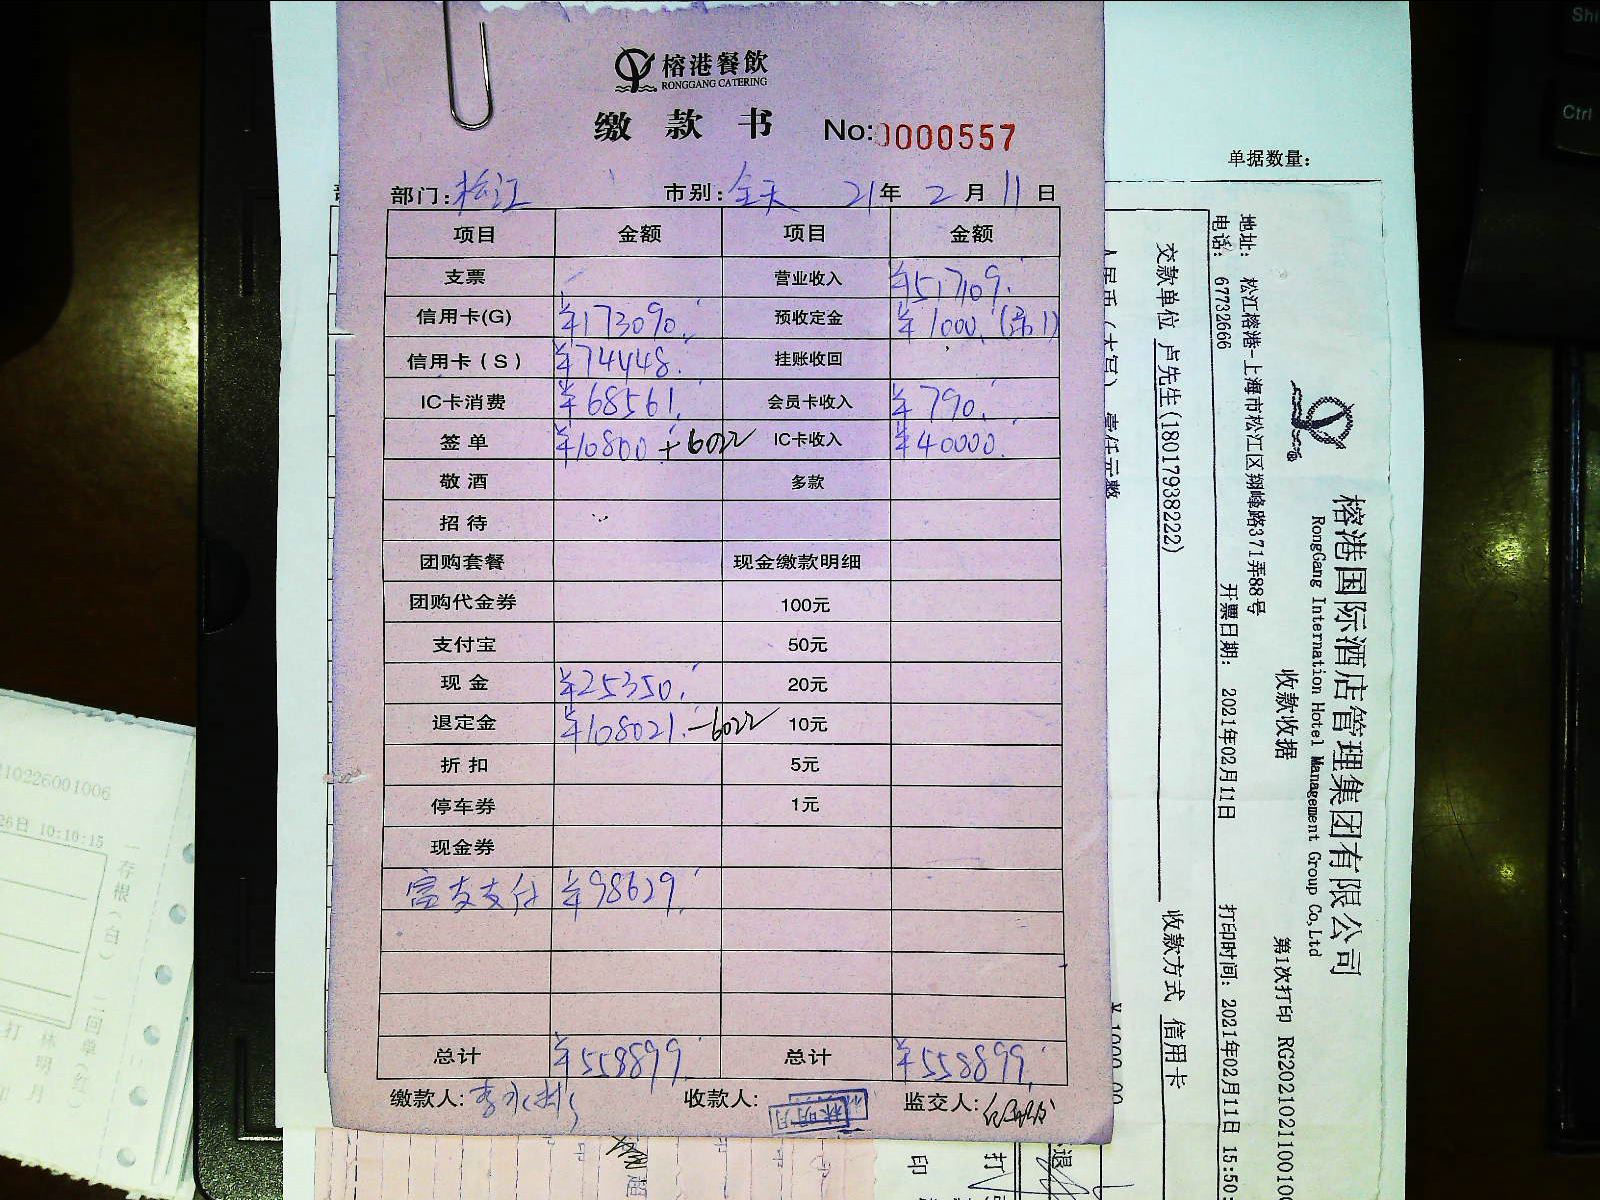 榕港餐飲
RONGGANG CATERING
缴款书 No:0000557
部门:松江 市别:全天 21年2月11日
项目 金额 项目 金额
支票 营业收入 ¥517109.
信用卡(G) ¥173090. 预收定金 ¥1000.
信用卡(S) ¥74448. 挂账收回
IC卡消费 ¥68561. 会员卡收入 ¥790.
签单 ¥10800 +6022 IC卡收入 ¥40000.
敬酒 多款
招待
团购套餐 现金缴款明细
团购代金券 100元
支付宝 50元
现金 ¥25350. 20元
退定金 ¥108021. -6022 10元
折扣 5元
停车券 1元
现金券
富友支付 ¥98629.
总计 ¥558899. 总计 ¥558899.
缴款人: 收款人: 林明月 监交人:
单据数量:
榕港国际酒店管理集团有限公司
RongGang International Hotel Management Group Co,Ltd
收款收据 第1次打印 RG20210211001
地址: 松江榕港-上海市松江区翔峰路371弄88号
电话: 67732666 开票日期: 2021年02月11日 打印时间: 2021年02月11日 15:50:
交款单位 卢先生(18017938222) 收款方式 信用卡
人民币(大写) 壹仟元整 ¥ 1000.00
退
打
印
210226001006
26日 10:10:15
一存根(白) 二回单(红)
打
林明月